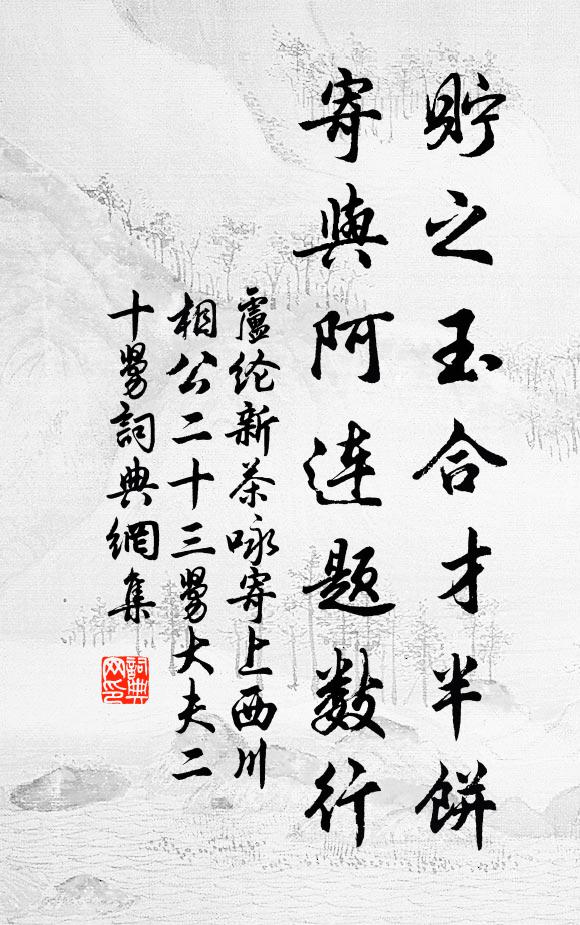 貯之玉合才半餅
寄與阿连题數行
盧纶新茶咏寄上西川
相公二十三舅大夫二
十舅詞典網集
詞典
网印